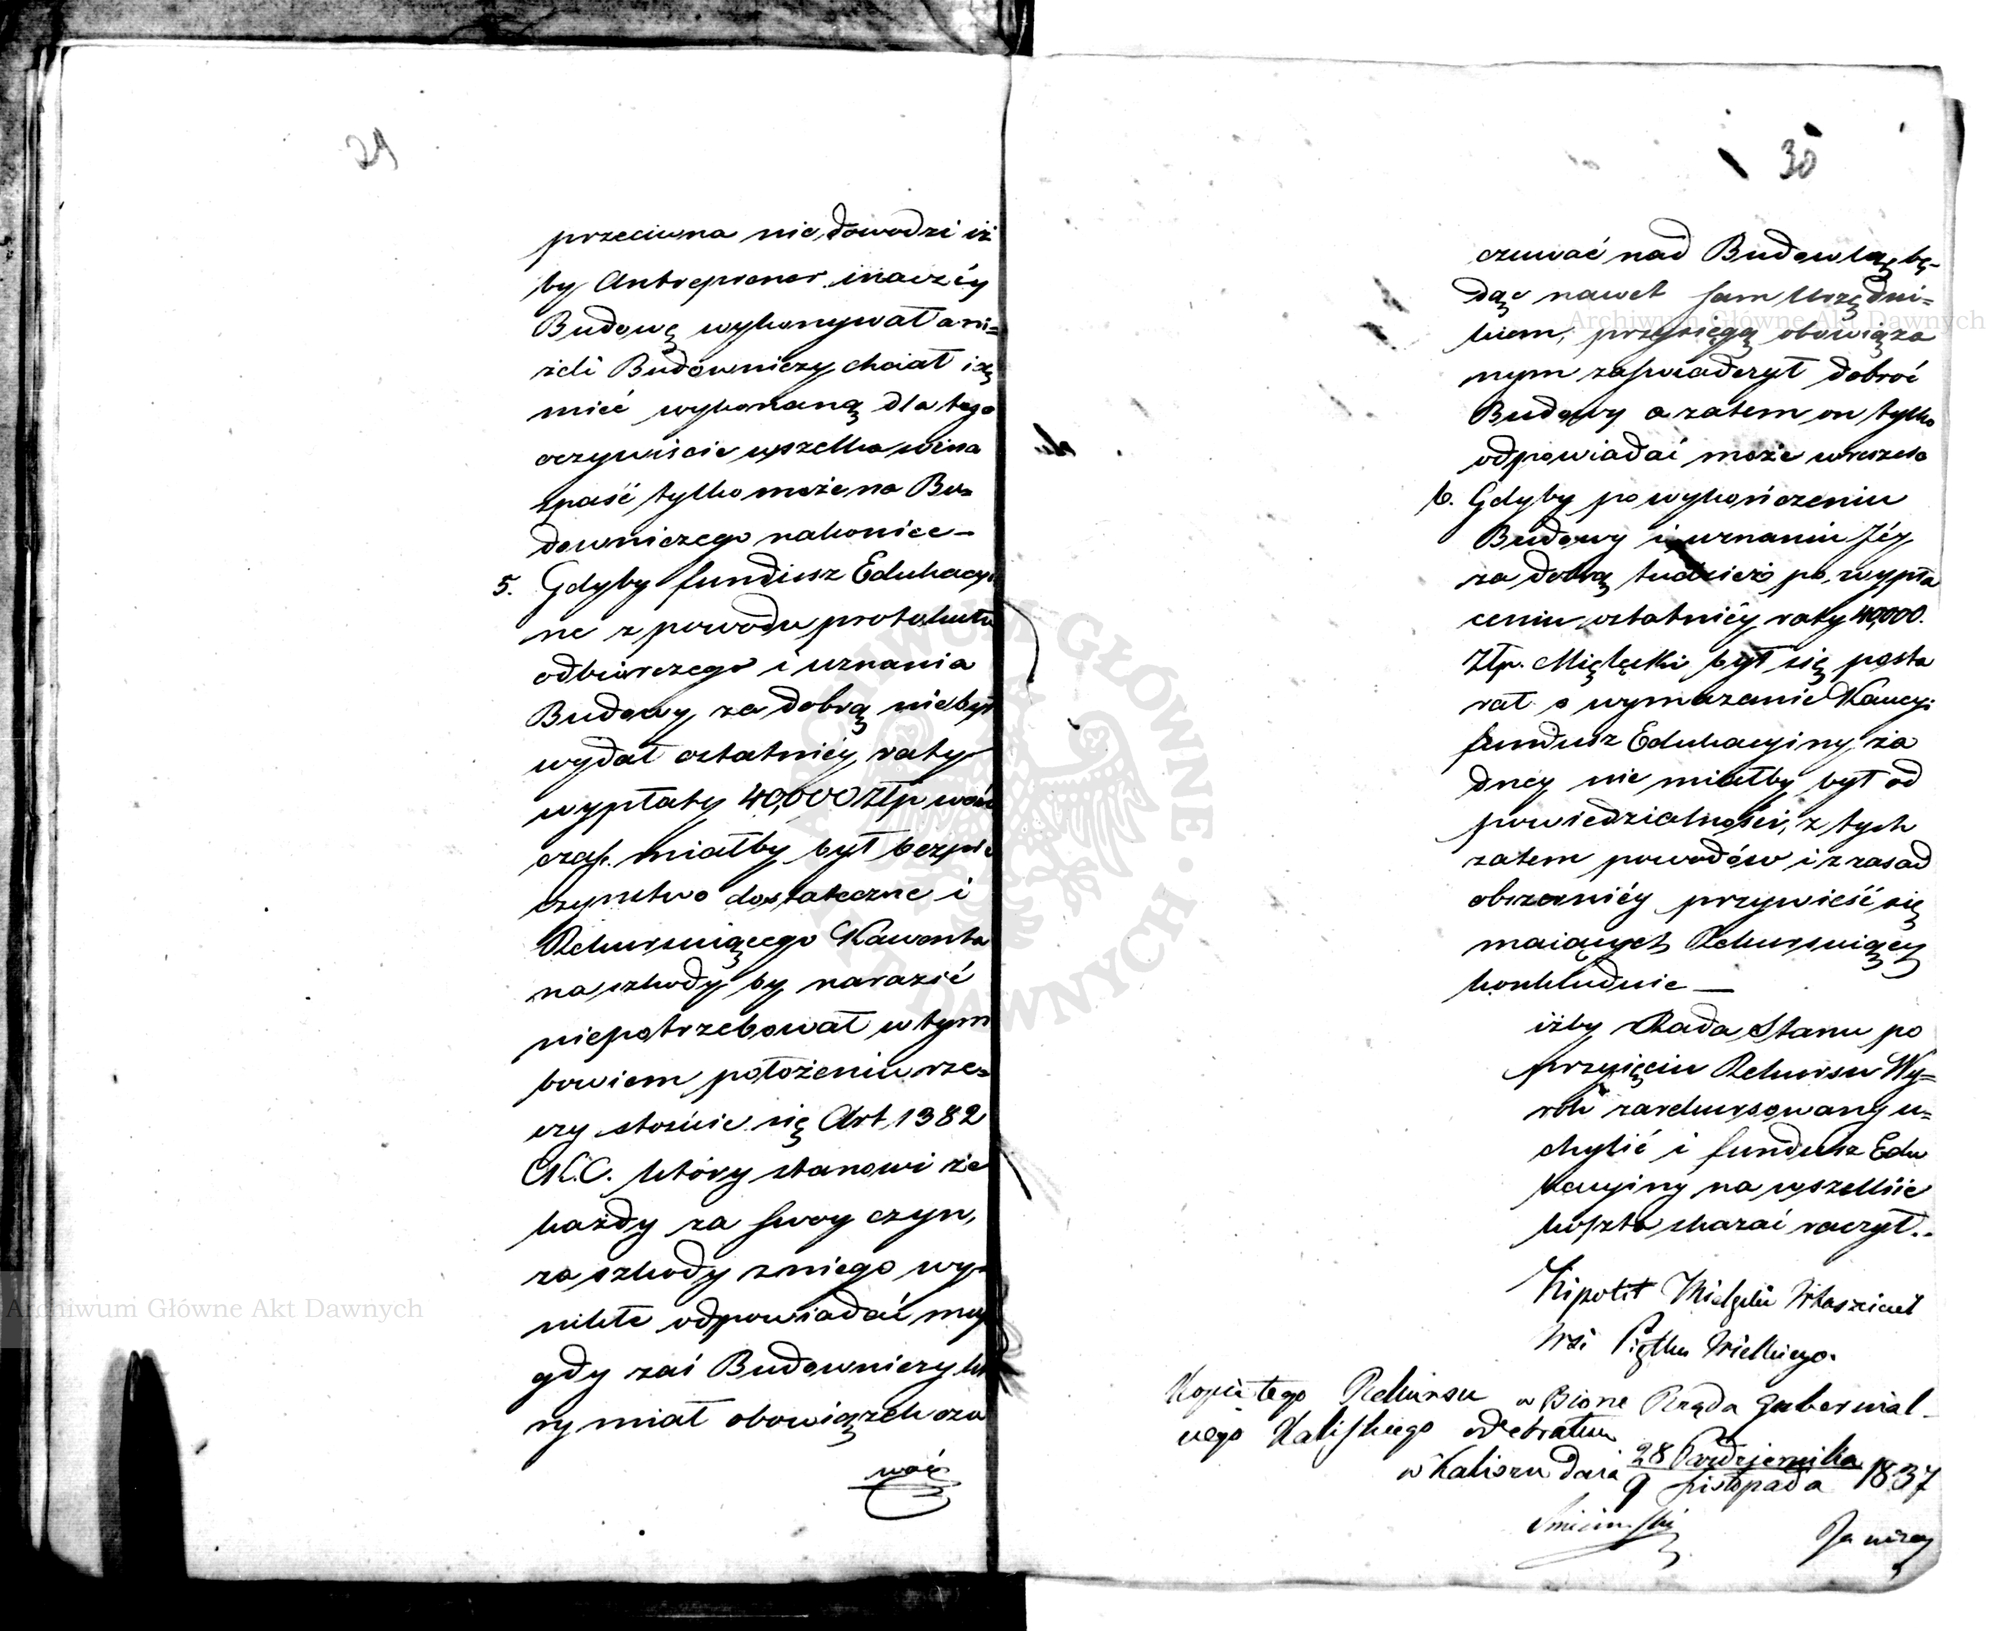 29
przeciwna nie dowodzi iż
by Antreprener inaczéy
Budowę wykonywał ani=
żeli Budowniczy chciał ią
mieć wykonaną dla tego
oczywiscie wszelka wina
spaść tylko może na Bu=
downiczego nakoniec —
5. Gdyby fundusz Edukacyi
ne z powodu protokułu
odbiorczego i uznania
Budowy za dobrą niebył
wydał ostatniéy raty
wypłaty 40,000 Złp
czas. miałby był bezpie
czynstwo dostateczne i
Rekursuiącego Kawenta
na szkody by narazić
niepotrzebował w tym
bowiem położeniu rze=
czy stosuie się Art, 1382
K.C. który stanowi że
każdy za swoy czyn,
za szkody z niego wy=
nikłe odpowiadać ma
gdy zaś Budowniczy któ
ry miał obowiązek czu
wać
30
czuwać nad Budowlą bę=
dąc nawet sam Urzędni=
kiem, przysięgą obowiąza
nym zaswiadczył dobroć
Budowy a zatem on tylko
odpowiadać może wreszcie
6. Gdyby po wykończeniu
Budowy i uznaniu Jéy
za dobrą tudzież po wypła
ceniu ostatniéy raty 40,000.
Złp. Mielęcki był się posta
rał o wymazanie Kaucyi
fundusz Edukacyiny ża
dney nie miałby był od
powiedzialności, z tych
zatem powodów i z zasad
obszerniéy przywieść się
maiących Rekursuiący
konkluduie —
iżby Rada Stanu po
przyięciu Rekursu Wy=
rok zarekursowany u=
chylić i fundusz Edu
kacyiny na wszelkie
koszta skazać raczył..
Hipolit Mielęcki Właściciel
Wsi Piątku Wielkiego.
Kopię tego Rekursu w Biórze Rządu Gubernial=
nego Kaliskiego odebrałem
w Kaliszu dnia 28 Października / 9 Listopada 1837